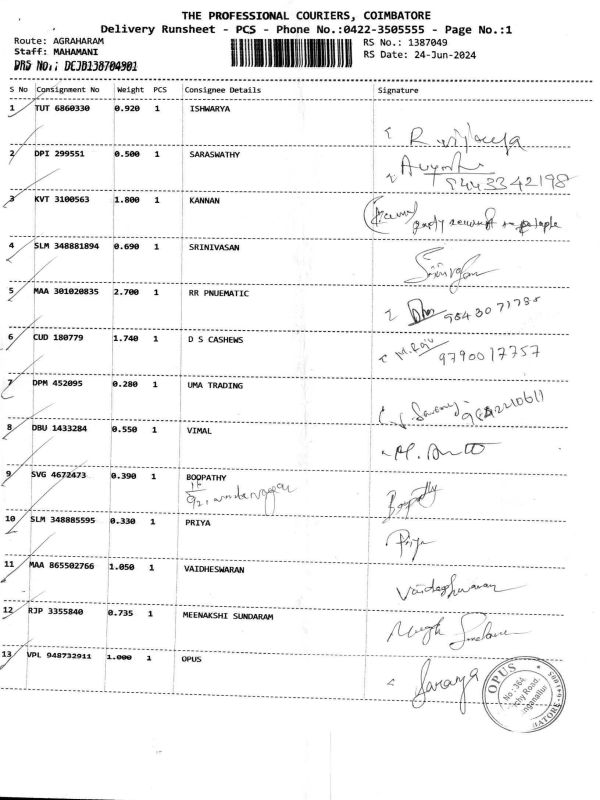 THE PROFESSIONAL COURIERS, COIMBATORE
Delivery Runsheet - PCS - Phone No.:0422-3505555 - Page No.:1
Route: AGRAHARAM RS No.: 1387049
Staff: MAHAMANI RS Date: 24-Jun-2024
DRS No.: DCJB138704901
S No Consignment No Weight PCS Consignee Details Signature
1 TUT 6860330 0.920 1 ISHWARYA
2 DPI 299551 0.500 1 SARASWATHY
9443342198
3 KVT 3100563 1.800 1 KANNAN
4 SLM 348881894 0.690 1 SRINIVASAN
5 MAA 301020835 2.700 1 RR PNUEMATIC
9843071788
6 CUD 180779 1.740 1 D S CASHEWS M. Raju
9790017757
7 DPM 452095 0.280 1 UMA TRADING
8 DBU 1433284 0.550 1 VIMAL
9 SVG 4672473 0.390 1 BOOPATHY Boopathy
10 SLM 348885595 0.330 1 PRIYA Priya
11 MAA 865502766 1.050 1 VAIDHESWARAN
Vaideghwaran
12 RJP 3355840 0.735 1 MEENAKSHI SUNDARAM
13 VPL 948732911 1.000 1 OPUS
Saranya
OPUS
No : 364,